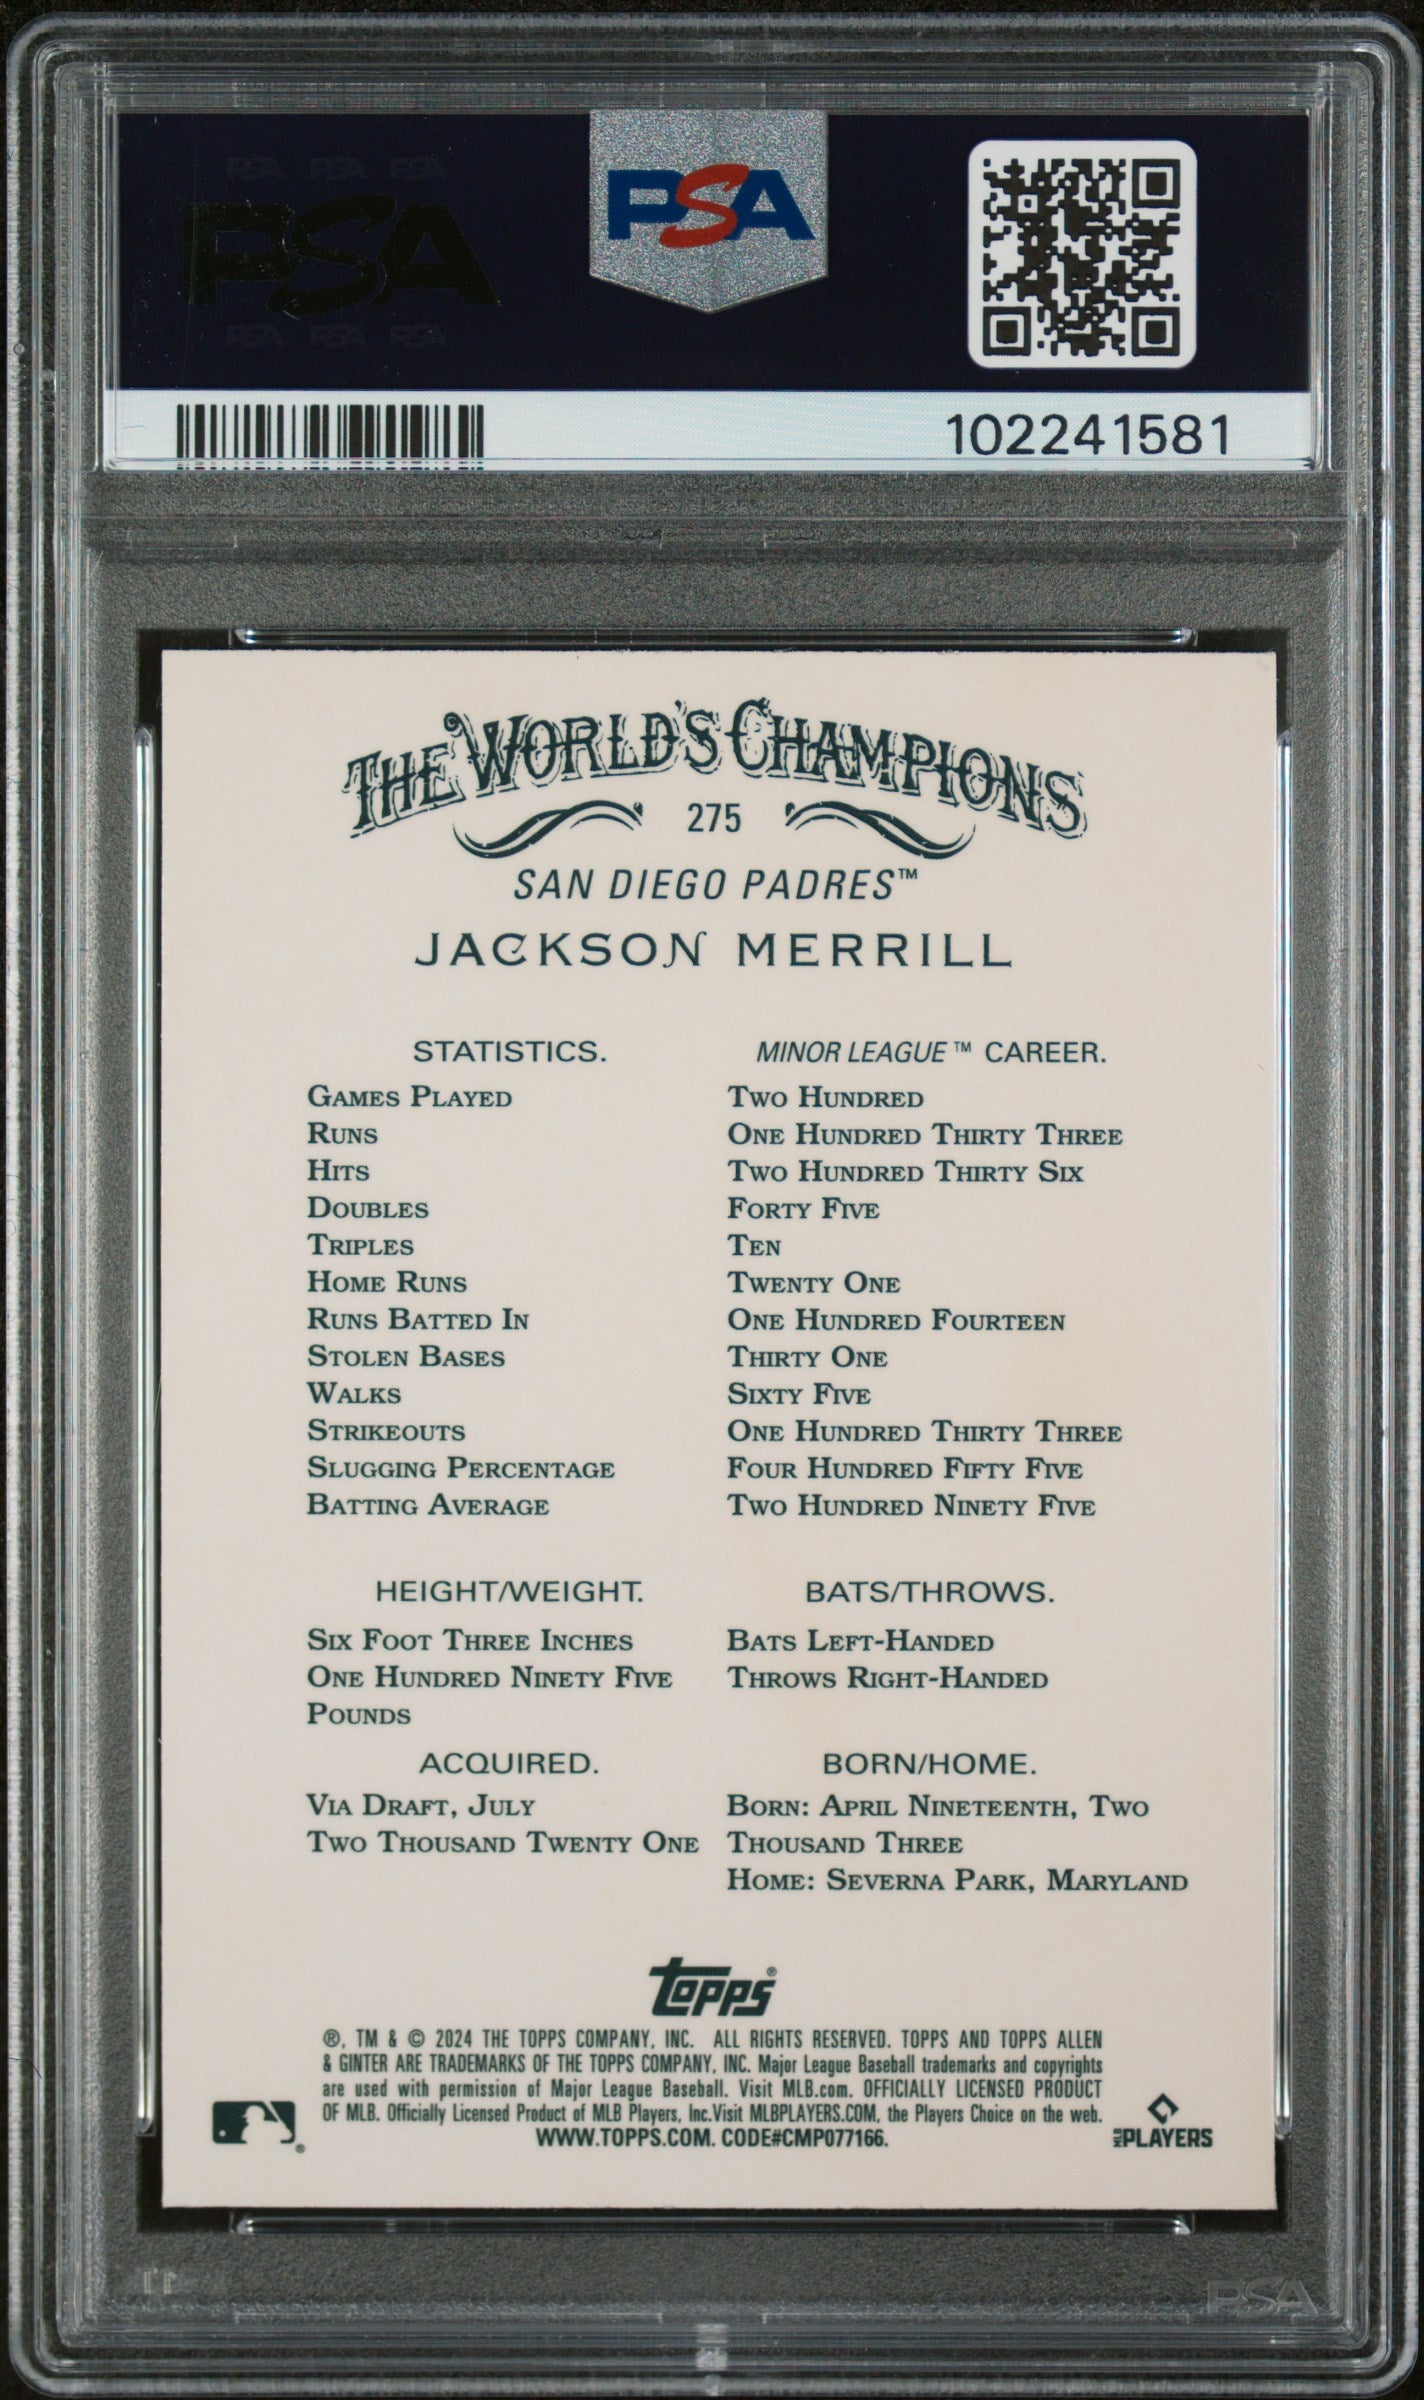 PSA PSA PSA
PSA
PSA PSA PSA
PSA
102241581
THE WORLD'S CHAMPIONS
275
SAN DIEGO PADRES™
JACKSON MERRILL
STATISTICS. MINOR LEAGUE™ CAREER.
GAMES PLAYED TWO HUNDRED
RUNS ONE HUNDRED THIRTY THREE
HITS TWO HUNDRED THIRTY SIX
DOUBLES FORTY FIVE
TRIPLES TEN
HOME RUNS TWENTY ONE
RUNS BATTED IN ONE HUNDRED FOURTEEN
STOLEN BASES THIRTY ONE
WALKS SIXTY FIVE
STRIKEOUTS ONE HUNDRED THIRTY THREE
SLUGGING PERCENTAGE FOUR HUNDRED FIFTY FIVE
BATTING AVERAGE TWO HUNDRED NINETY FIVE
HEIGHT/WEIGHT.
SIX FOOT THREE INCHES
ONE HUNDRED NINETY FIVE
POUNDS
BATS/THROWS.
BATS LEFT-HANDED
THROWS RIGHT-HANDED
ACQUIRED.
VIA DRAFT, JULY
TWO THOUSAND TWENTY ONE
BORN/HOME.
BORN: APRIL NINETEENTH, TWO
THOUSAND THREE
HOME: SEVERNA PARK, MARYLAND
TOPPS®
®, TM & © 2024 THE TOPPS COMPANY, INC. ALL RIGHTS RESERVED. TOPPS AND TOPPS ALLEN
& GINTER ARE TRADEMARKS OF THE TOPPS COMPANY, INC. Major League Baseball trademarks and copyrights
are used with permission of Major League Baseball. Visit MLB.com. OFFICIALLY LICENSED PRODUCT
OF MLB. Officially Licensed Product of MLB Players, Inc.Visit MLBPLAYERS.COM, the Players Choice on the web.
WWW.TOPPS.COM. CODE#CMP077166.
®
MLB PLAYERS
PSA